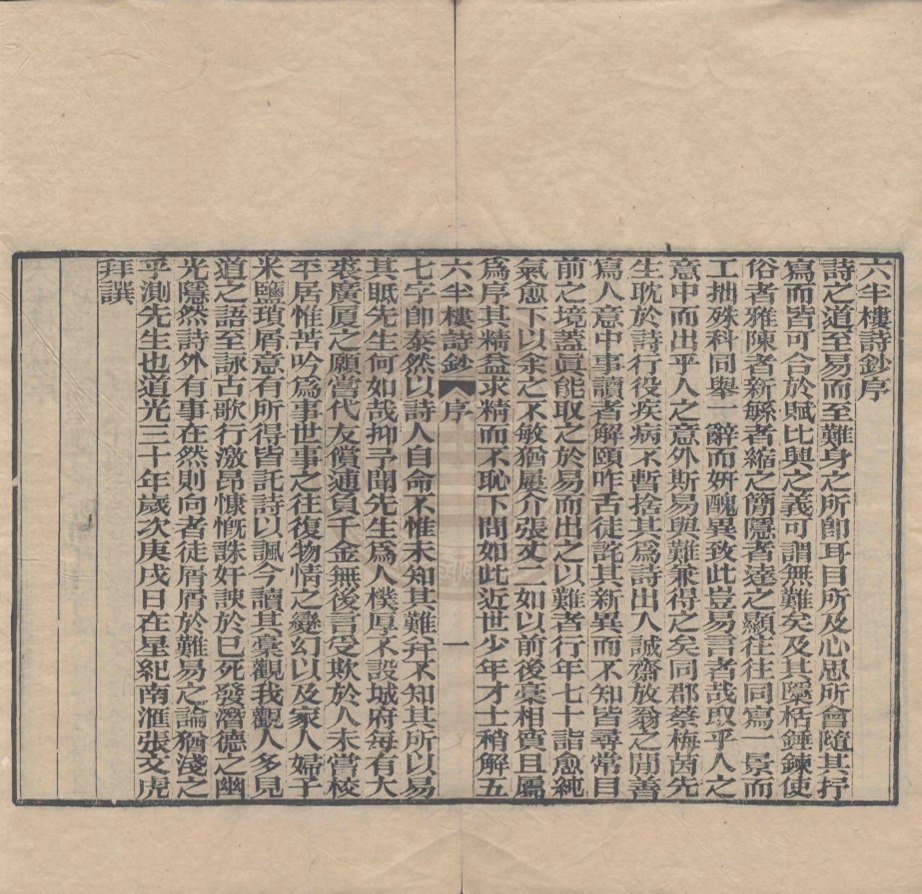 六半樓詩鈔序
詩之道至易而至難身之所卽耳目所及心思所會隨其抒
寫而皆可合於賦比興之義可謂無難矣及其隱栝錘鍊使
俗者雅陳者新緐者縮之簡隱者達之顯往往同寫一景而
工拙殊科同舉一辭而妍醜異致此豈易言者哉取乎人之
意中而出乎人之意外斯易與難兼得之矣同郡蔡梅茵先
生耽於詩行役疾病不暫捨其爲詩出入誠齋放翁之閒善
寫人意中事讀者解頤咋舌徒詫其新異而不知皆尋常目
前之境蓋眞能取之於易而出之以難者行年七十詣愈純
氣愈下以余之不敏猶屢介張丈二如以前後稾相質且屬
爲序其精益求精而不恥下問如此近世少年才士稍解五
六半樓詩鈔 序 一
七字卽泰然以詩人自命不惟未知其難幷不知其所以易
其眡先生何如哉抑予聞先生爲人樸厚不設城府每有大
裘廣厦之願嘗代友償逋負千金無後言受欺於人未嘗校
平居惟苦吟爲事世事之往復物情之變幻以及家人婦子
米鹽瑣屑意有所得皆託詩以諷今讀其稾觀我觀人多見
道之語至詠古歌行激昂慷慨誅奸諛於已死發潛德之幽
光隱然詩外有事在然則向者徒屑屑於難易之論猶淺之
乎測先生也道光三十年歲次庚戌日在星紀南滙張文虎
拜譔